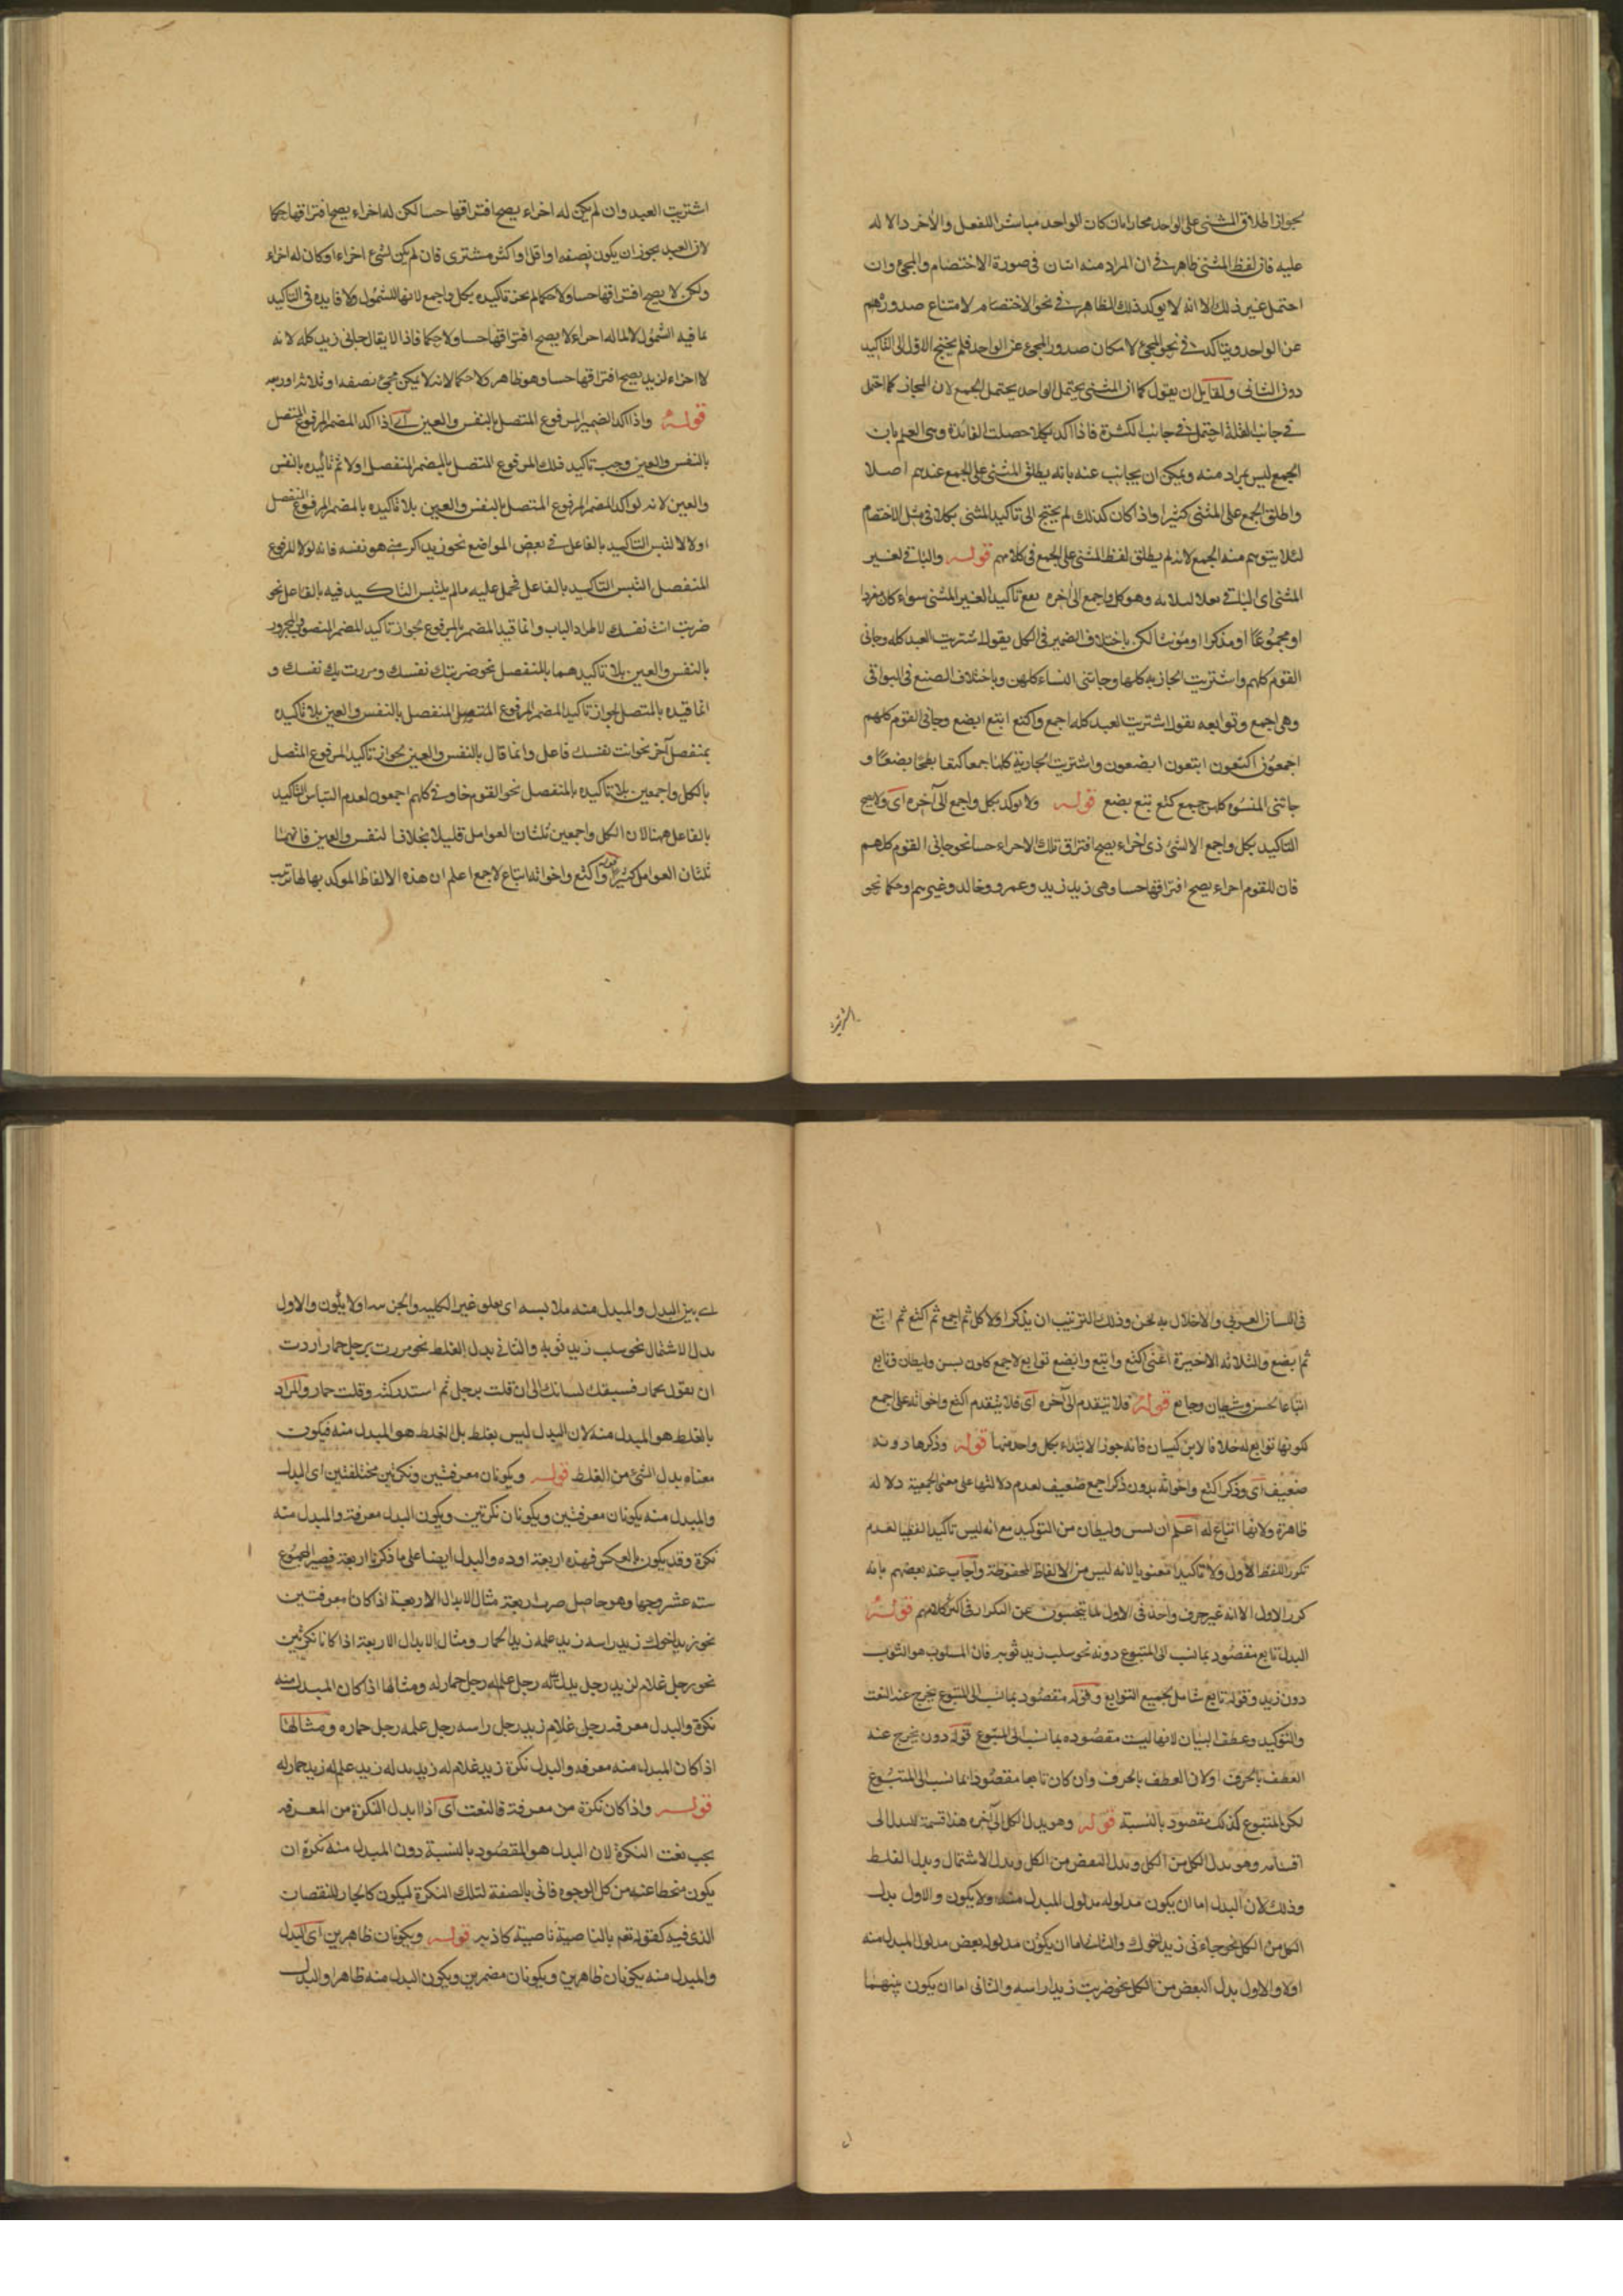 لجواز اطلاق المثنى على الواحد مجازا بان كان الواحد مباشرا للفعل والآخر دالا له
عليه فان لفظ المثنى ظاهر في ان المراد منه اثنان في صورة الاختصام والمجئ وان
احتمل غير ذلك الا انه لا يوكد ذلك الظاهر في نحو الاختصام لامتناع صدورهم
عن الواحد ويتاكد في نحو المجئ لامكان صدور المجئ عن الواحد فلم يحتج الاول الى التاكيد
دون الثاني ولقايل ان يقول كما ان المثنى يحتمل الواحد يحتمل الجمع لان المجاز كما احتمل
في جانب القلة احتمل في جانب الكثرة فاذا اكد بكلا حصلت الفائدة وهى العلم بان
الجمع ليس بمراد منه ويمكن ان يجاب عنه بانه يطلق المثنى على الجمع عندهم اصلا
واطلق الجمع على المثنى كثيرا واذا كان كذلك لم يحتج الى تاكيد المثنى بكلا في مثل الاختصام
لئلا يتوهم منه الجمع لانه لم يطلق لفظ المثنى على الجمع في كلامهم قوله والباقي لغير
المثنى اى الباقي وهو كل واجمع الى اخره يقع تاكيدا لغير المثنى سواء كان مفردا
او مجموعا او مذكرا او مونثا لكن باختلاف الضمير في الكل يقول اشتريت العبد كله وجانى
القوم كلهم واشتريت الجارية كلها وجاتنى النساء كلهن وباختلاف الصيغ في البواقى
وهى اجمع وتوابعه يقول اشتريت العبد كله اجمع واكتع ابتع ابضع وجانى القوم كلهم
اجمعون اكتعون ابتعون ابضعون واشتريت الجارية كلها جمعا كتعا بتعا بضعا و
جاتنى النسوه كلهن جمع كتع بتع بضع قوله ولا يوكد بكل واجمع الى آخره اى ولا يصح
التاكيد بكل واجمع الا لشئ ذى اجزاء يصح افتراق تلك الاجزاء حسا نحو جانى القوم كلهم
فان للقوم اجزاء يصح افتراقها حسا وهى زيد زيد وعمرو وخالد وغيرهم او حكما نحو
اشتريت
اشتريت العبد وان لم يكن له اجزاء يصح افتراقها حسا لكن له اجزاء يصح افتراقها حكما
لان العبد يجوز ان يكون نصفه او اقل او اكثر مشترى فان لم يكن لشئ اجزاء او كان له اجزاء
ولكن لا يصح افتراقها حسا ولا حكما لم يجز تاكيده بكل واجمع لانها للشمول ولا فايده في التاكيد
بما فيه الشمول لما له اجزاء لا يصح افتراقها حسا ولا حكما فاذا لا يقال جانى زيد كله لانه
لا اجزاء لزيد يصح افتراقها حسا وهو ظاهر ولا حكما لانه لا يمكن مجئ نصفه او ثلاثة اوربعه
قوله واذا اكد الضمير المرفوع المتصل بالنفس والعين اى اذا اكد المضمر المرفوع المتصل
بالنفس والعين وجب تاكيد ذلك المرفوع المتصل بالمضمر المنفصل اولا ثم تاكيده بالنفس
والعين لانه لو اكد المضمر المرفوع المتصل بالنفس والعين بلا تاكيده بالمضمر المرفوع المنفصل
اولا لالتبس التاكيد بالفاعل في بعض المواضع نحو زيد اكرمنى هو نفسه فانه لولا المرفوع
المنفصل التبس التاكيد بالفاعل فحمل عليه مالم يلتبس التاكيد فيه بالفاعل نحو
ضربت انت نفسك لاطراد الباب وانما قيد المضمر بالمرفوع لجواز تاكيد المضمر المنصوب والمجرور
بالنفس والعين بلا تاكيدهما بالمنفصل نحو ضربتك نفسك ومررت بك نفسك و
انما قيده بالمتصل لجواز تاكيد المضمر المرفوع المنفصل بالنفس والعين بلا تاكيده
بمنفصل آخر نحو انت نفسك فاعل وانما قال بالنفس والعين لجواز تاكيد المرفوع المتصل
بالكل واجمعين بلا تاكيده بالمنفصل نحو القوم جاونى كلهم اجمعون لعدم التباس التاكيد
بالفاعل ههنا لان الكل واجمعين تليان العوامل قليلا بخلاف النفس والعين فانهما
تليان العوامل كثيرا قوله واكتع واخواته اتباع لاجمع اعلم ان هذه الالفاظ الموكد بها لها ترتيب
في اللسان العربي والاخلال به لحن وذلك الترتيب ان يذكر اولا كل ثم اجمع ثم اكتع ثم ابتع
ثم ابضع والثلاثه الاخيرة اعنى اكتع وابتع وابضع توابع لاجمع كلون بسن وليطان ونايع
اتباعا لحسن وشيطان وجايع قوله فلا تتقدم الى آخره اى فلا يتقدم اكتع واخواته على اجمع
لكونها توابع له خلافا لابن كيسان فانه جوز الابتداء بكل واحد منها قوله وذكرها دونه
ضعيف اى وذكر اكتع واخواته بدون ذكر اجمع ضعيف لعدم دلالتها على معنى الجمعية دلالة
ظاهرة ولانها اتباع له اعلم ان بسن وليطان من التوكيد مع انه ليس تاكيدا لفظيا لعدم
تكرر اللفظ الاول ولا تاكيدا معنويا لانه ليس من الالفاظ المحفوظة واجاب عنه بعضهم بانه
كرر الاول الا انه غير حرف واحد في الاول لما يجتنبون عن التكرار في اكثر كلامهم قوله
البدل تابع مقصود بما نسب الى المتبوع دونه نحو سلب زيد ثوبه فان المسلوب هو الثوب
دون زيد وقوله تابع شامل لجميع التوابع وقوله مقصود بما نسب الى المتبوع يخرج عنه النعت
والتوكيد وعطف البيان لانها ليست مقصوده بما نسب الى المتبوع قوله دونه يخرج عنه
العطف بالحرف اولان العطف بالحرف وان كان تابعا مقصودا بما نسب الى المتبوع
لكن المتبوع كذلك مقصود بالنسبة قوله وهو بدل الكل الى آخره هذا قسمة للبدل الى
اقسامه وهو بدل الكل من الكل وبدل البعض من الكل وبدل الاشتمال وبدل الغلط
وذلك لان البدل اما ان يكون مدلوله مدلول المبدل منه او لا يكون والاول بدل
الكل من الكل نحو جاءنى زيد اخوك والثانى اما ان يكون مدلوله بعض مدلول المبدل منه
اولا والاول بدل البعض من الكل نحو ضربت زيدا راسه والثانى اما ان يكون بينهما
اى بين البدل والمبدل منه ملابسه اى تعلق غير الكليه والجزئيه اولا يكون والاول
بدل الاشتمال نحو سلب زيد ثوبه والثانى بدل الغلط نحو مررت برجل حمار اردت
ان يقول بحمار فسبقك لسانك الى ان قلت برجل ثم استدركته وقلت حمار والمراد
بالغلط هو المبدل منه لان البدل ليس بغلط بل الغلط هو المبدل منه فيكون
معناه بدل الشئ من الغلط قوله ويكونان معرفتين ونكرتين مختلفتين اى البدل
والمبدل منه يكونان معرفتين ويكونان نكرتين ويكون البدل معرفة والمبدل منه
نكرة وقد يكون بالعكس فهذه اربعة والبدل ايضا على ما ذكرنا اربعة فيصير المجموع
سته عشر وجها وهو حاصل ضرب اربعة مثال الابدال الاربعة اذا كانا معرفتين
نحو زيد اخوك زيد راسه زيد علمه زيد الحمار ومثال الابدال الاربعة اذا كانا نكرتين
نحو رجل غلام لزيد رجل يد له رجل علم له رجل حمار له ومثالها اذا كان المبدل منه
نكرة والبدل معرفه رجل غلام زيد رجل راسه رجل علمه رجل حماره ومثالها
اذا كان المبدل منه معرفه والبدل نكرة زيد غلام له زيد يد له زيد علم له زيد حمار له
قوله واذا كان نكرة من معرفة فالنعت اى اذا ابدل النكرة من المعرفه
يجب نعت النكرة لان البدل هو المقصود بالنسبة دون المبدل منه نكرة ان
يكون منحطا عنه من كل الوجوه فاتى بالصفة لتلك النكرة ليكون كالجابر للنقصان
الذى فيه كقوله تعم بالناصية ناصية كاذبه قوله ويكونان ظاهرين اى البدل
والمبدل منه يكونان ظاهرين ويكونان مضمرين ويكون المبدل منه ظاهرا والبدل